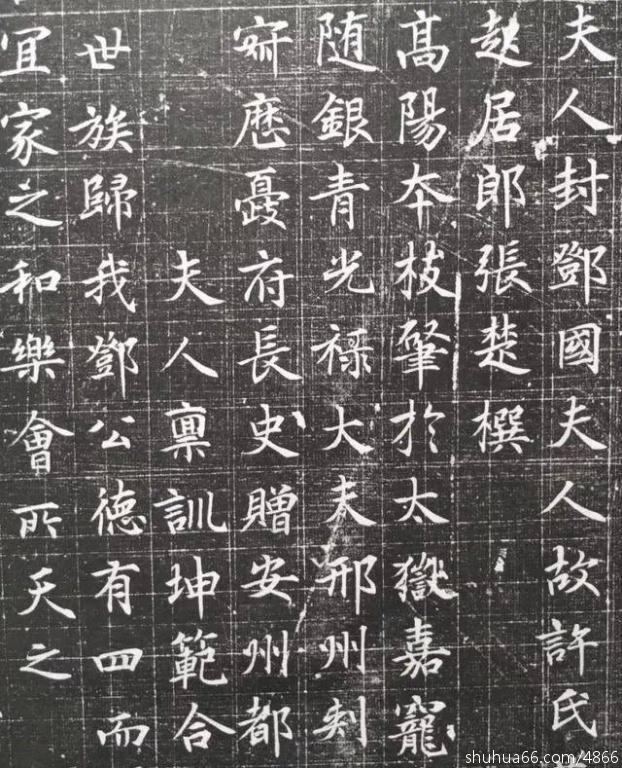 夫人封鄧國夫人故許氏
起居郎張楚撰
高陽本枝肇於太嶽嘉寵
随銀青光祿大夫邢州刾
歷夔府長史贈安州都
夫人禀訓坤範合
世族歸我鄧公德有四而
宜家之和樂會所天之
shuhua66.com/4866